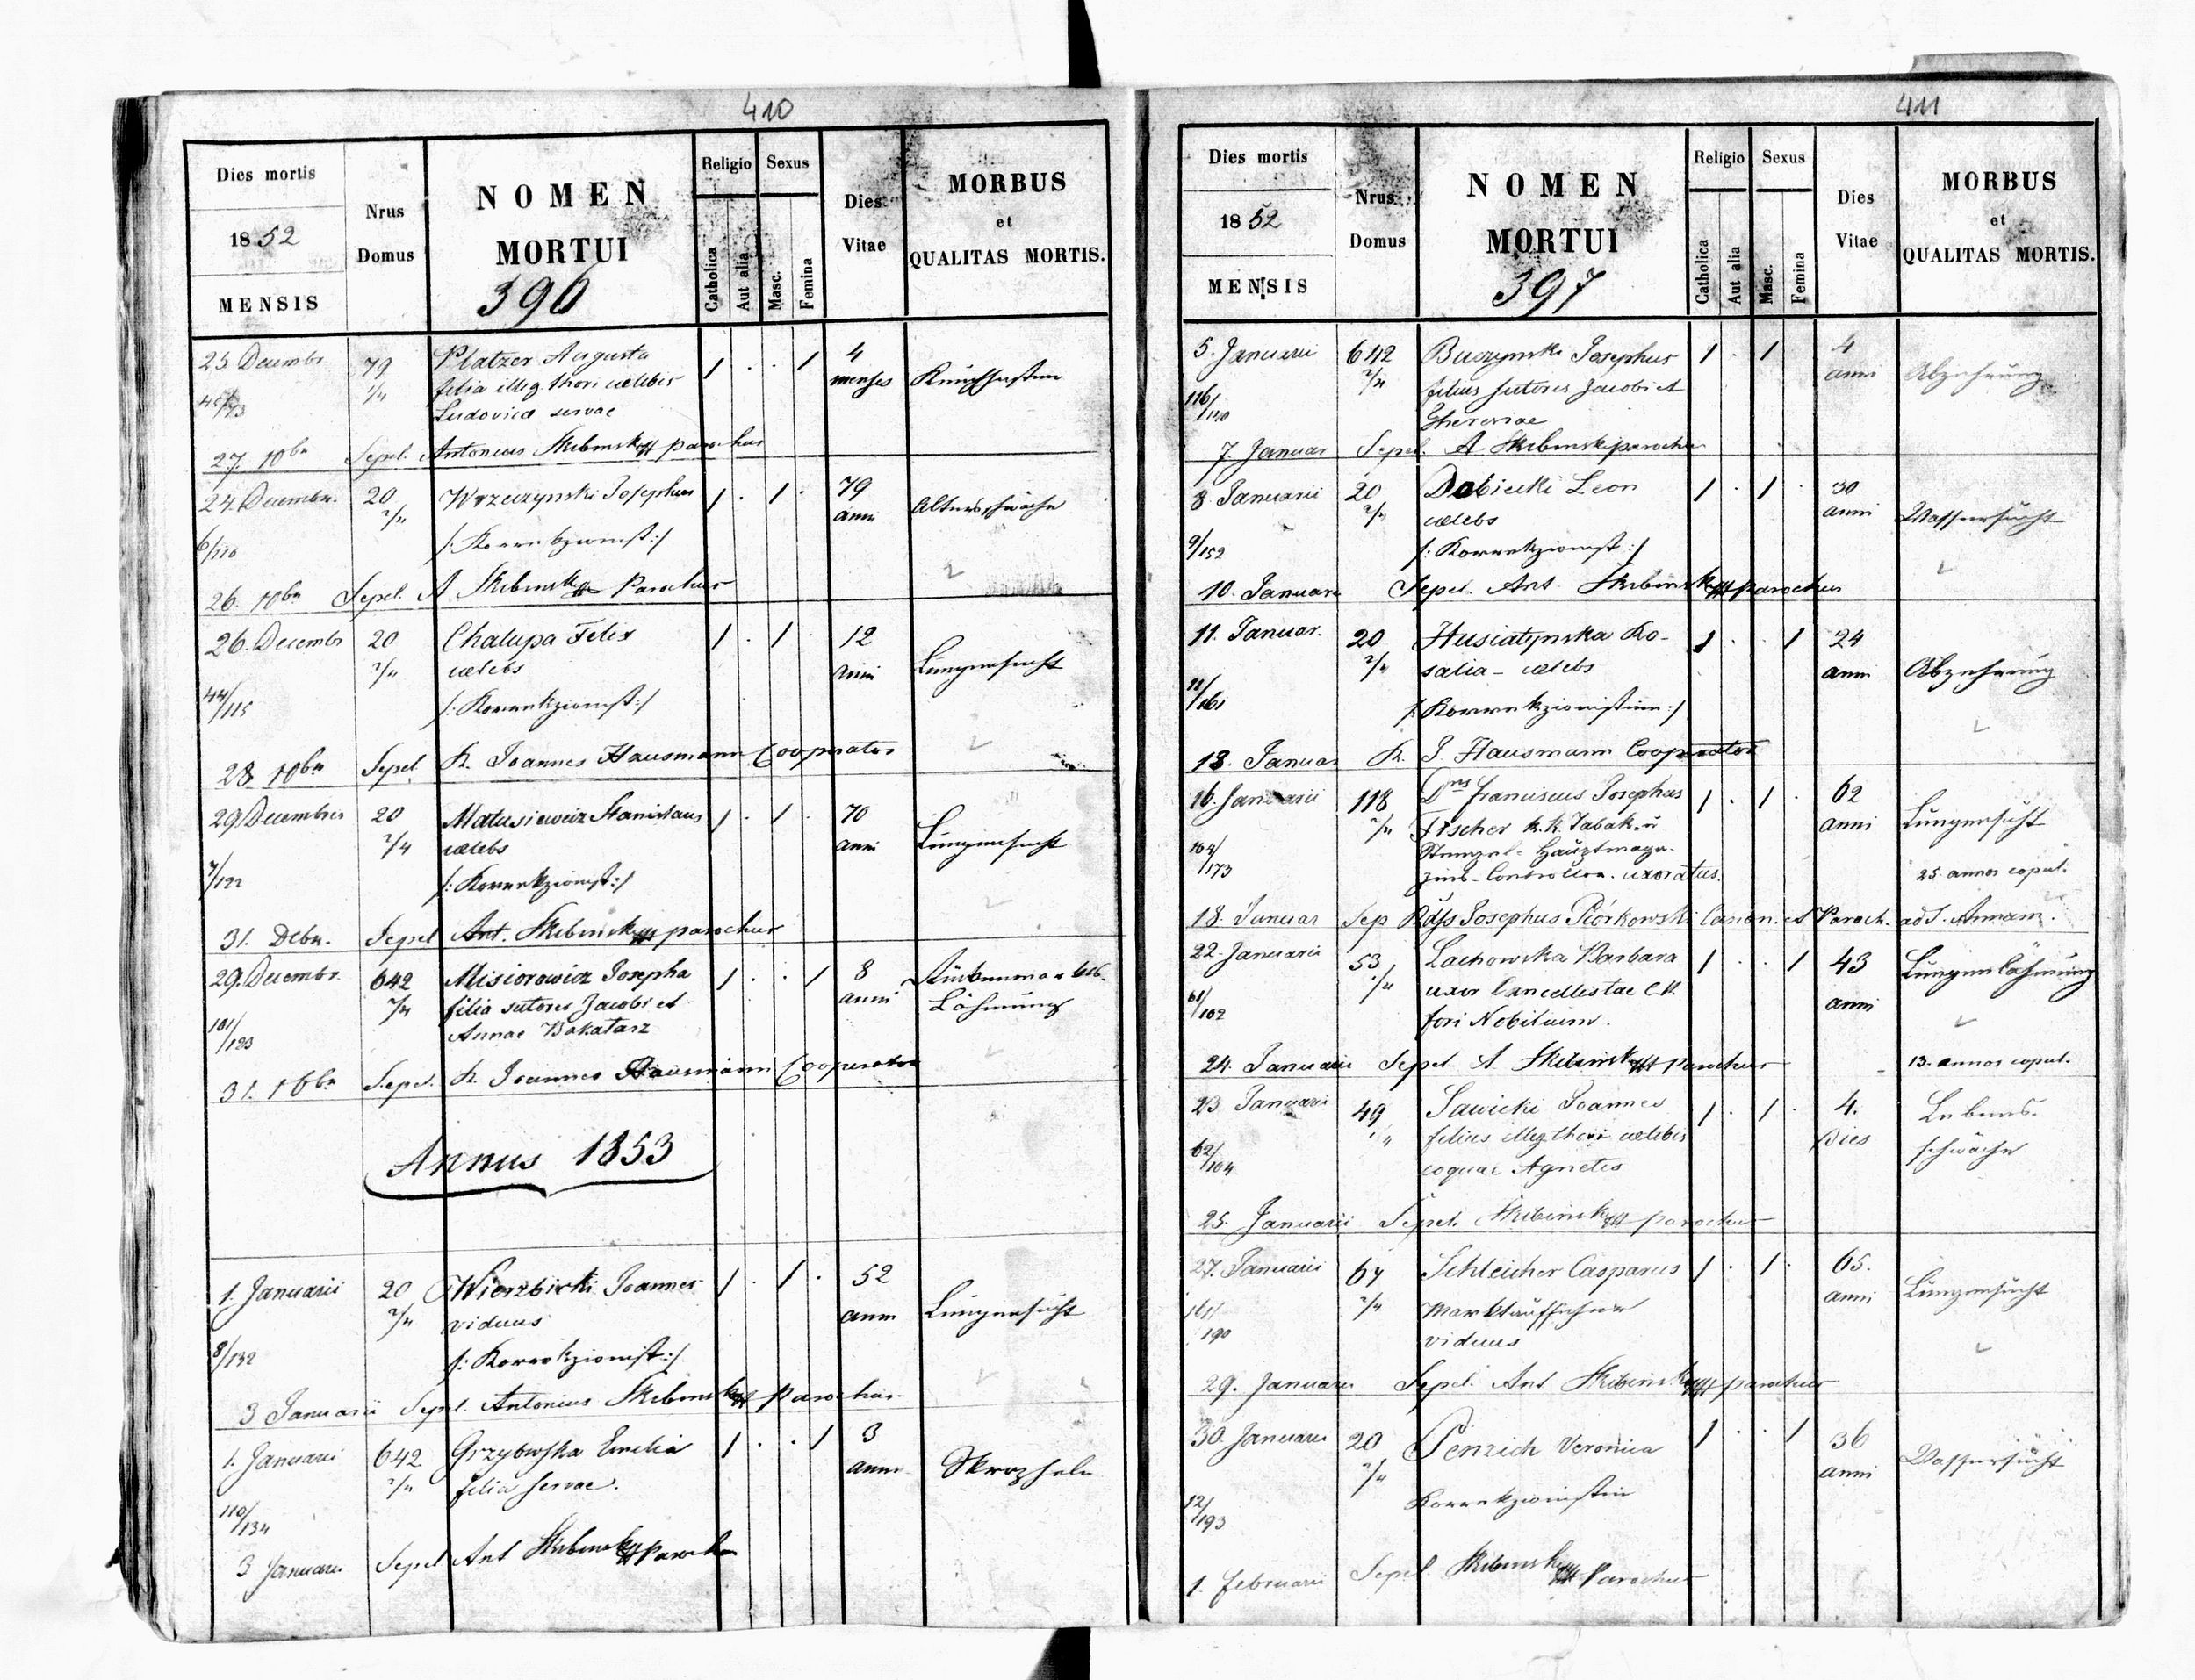 410
Dies mortis
1852
MENSIS
Nrus
Domus
NOMEN
MORTUI
396
Religio
Sexus
Catholica
Aut alia
Masc.
Femina
Dies
Vitae
MORBUS
et
QUALITAS MORTIS.
25 Decembr 79 Platzer Augusta 1 . . 1 4
filia illeg. thori caelebis menses
Ludovicae servae
27. 10br Sepel. Antonius Skibinski parochus
24. Decembr. 20 Wrzeczynski Josephus 1 . 1 . 79 Altersschwäche
2/4 anni
6/110 /: Korrekzionist :/
26. 10br Sepel. A Skibinski Parochus
26. Decembr 20 Chalupa Felix 1 . 1 . 12
2/4 caelebs anni Lungensucht
44/115 /: Korrekzionist :/
28 10br Sepel. K. Joannes Hausmann Cooperator
29. Decembris 20 Matusiewicz Stanislaus 1 . 1 . 70
2/4 caelebs anni Lungensucht
7/122 /: Korrekzionist :/
31. Debr. Sepel Ant. Skibinski parochus
29. Decembr. 642 Misiorowicz Josepha 1 . . 1 8
2/4 filia sutoris Jacobi et anni Lähmung
101/123 Annae Bakatarz
31. 10br Sepel. K. Joannes Hausmann Cooperator
Annus 1853
1. Januarii 20 Wierzbicki Joannes 1 . 1 . 52
2/4 viduus anni Lungensucht
8/132 /: Korrekzionist :/
3 Januarii Sepel. Antonius Skibinski parochus
1. Januarii 642 Grzybowska Emelia 1 . . 1 3
2/4 filia servae. anni Skropheln
110/134
3 Januarii Sepel Ant Skibinski Parochus
411
Dies mortis
1852
MENSIS
Nrus
Domus
NOMEN
MORTUI
397
Religio
Sexus
Catholica
Aut alia
Masc.
Femina
Dies
Vitae
MORBUS
et
QUALITAS MORTIS.
5. Januarii 642 Buszynski Josephus 1 . 1 4
2/4 filius sutoris Jacobi et anni Abzehrung
116/140 Theresiae
7. Januar Sepel. A. Skibinski parochus
8 Januarii 20 Dobiecki Leon 1 . 1 . 30
2/4 caelebs anni Wassersucht
9/152 /: Korrekzionist :/
10. Januarii Sepel. Ant. Skibinski parochus
11. Januar. 20 Husiatynska Ro- 1 . . 1 24
2/4 salia - caelebs anni Abzehrung
11/161 /: Korrekzionistinn :/
13. Januar K. J. Hausmann Cooperator
16. Januarii 118 Dns Franciscus Josephus 1 . 1 . 62
2/4 Fischer k. k. Tabak u anni Lungensucht
104/173 Stempel- Hauptmaga-
zins- Controllor. uxoratus. 25. annos copul.
18. Januar Sep Rdss Josephus Piórkowski Canon. et Paroch. ad S. Annam.
22. Januarii 53 Lachowska Barbara 1 . . 1 43 Lungenlähmung
uxor Cancellistae C. R. anni
61/102 fori Nobilium.
24. Januarii Sepel. A. Skibinski parochus 13. annos copul.
23 Januarii 49 Sawicki Joannes 1 . 1 . 4. Lebens-
filius illeg. thori caelebis dies schwäche
62/104 coquae Agnetis
25. Januarii Sepel. Skibinski parochus
27. Januarii 64 Schleicher Casparus 1 . 1 . 65.
2/4 Marktaufseher anni Lungensucht
190 viduus
29. Januarii Sepel. Ant Skibinski parochus
30. Januarii 20 Penzich Veronica 1 . . 1 36
2/4 anni Wassersucht
12/193 Korrekzionistin
1. Februarii Sepel. Skibinski Parochus